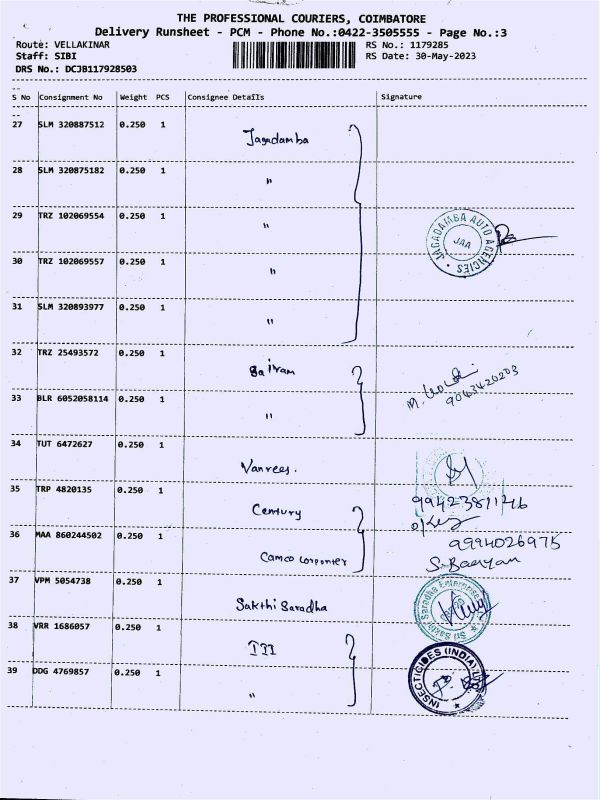 THE PROFESSIONAL COURIERS, COIMBATORE
Delivery Runsheet - PCM - Phone No.:0422-3505555 - Page No.:3
Route: VELLAKINAR RS No.: 1179285
Staff: SIBI RS Date: 30-May-2023
DRS No.: DCJB117928503
S No Consignment No Weight PCS Consignee Details Signature
27 SLM 320887512 0.250 1 Jagadamba
28 SLM 320875182 0.250 1 "
29 TRZ 102069554 0.250 1 "
JAGADAMBA AUTO AGENCIES
JAA
30 TRZ 102069557 0.250 1 "
31 SLM 320893977 0.250 1 "
32 TRZ 25493572 0.250 1 Sairam
9043420203
33 BLR 6052058114 0.250 1 "
34 TUT 6472627 0.250 1 Vanrees.
35 TRP 4820135 0.250 1 Century
9942381146
36 MAA 860244502 0.250 1 Camco Carpenter
9994026975
37 VPM 5054738 0.250 1 Sakthi Saradha
Sri Sakthi Saradha Enterprises
38 VRR 1686057 0.250 1 III
39 DDG 4769857 0.250 1 "
INSECTICIDES (INDIA) LTD